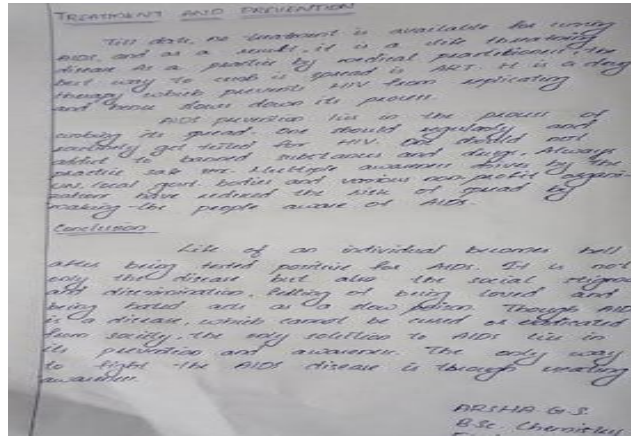 TREATMENT AND PREVENTION
Till date, no treatment is available for curing
AIDS, and as a result, it is a life threatening
disease. As a practice by medical practitioners, the
best way to curb its spread is ART. It is a drug
therapy which prevents HIV from replicating
and hence slows down its process.
AIDS prevention lies in the process of
curbing its spread. One should regularly and
routinely get tested for HIV. One should not
addict to banned substances and drugs. Always
practice safe sex. Multiple awareness drives by the
local govt. bodies and various non-profit organi-
have reduced the risk of spread by
making the people aware of AIDS.
Conclusion
Life of an individual becomes hell
after being tested positive for AIDS. It is not
only the disease but also the social
and discrimination, of being loved and
being hated acts as a slow poison. Though AIDS
is a disease, which cannot be cured or eradicated
from society, the only solution to AIDS lies in
its prevention and awareness. The only way
to fight the AIDS disease is through creating
awareness.
ARSHA G.S.
BSc. Chemistry